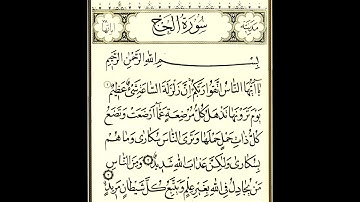 سُورَةُ الْحَجِّ
بِسْمِ اللَّهِ الرَّحْمَٰنِ الرَّحِيمِ
يَا أَيُّهَا النَّاسُ اتَّقُوا رَبَّكُمْ إِنَّ زَلْزَلَةَ السَّاعَةِ شَيْءٌ عَظِيمٌ
يَوْمَ تَرَوْنَهَا تَذْهَلُ كُلُّ مُرْضِعَةٍ عَمَّا أَرْضَعَتْ وَتَضَعُ
كُلُّ ذَاتِ حَمْلٍ حَمْلَهَا وَتَرَى النَّاسَ سُكَارَىٰ وَمَا هُمْ
بِسُكَارَىٰ وَلَٰكِنَّ عَذَابَ اللَّهِ شَدِيدٌ وَمِنَ النَّاسِ
مَنْ يُجَادِلُ فِي اللَّهِ بِغَيْرِ عِلْمٍ وَيَتَّبِعُ كُلَّ شَيْطَانٍ مَرِيدٍ